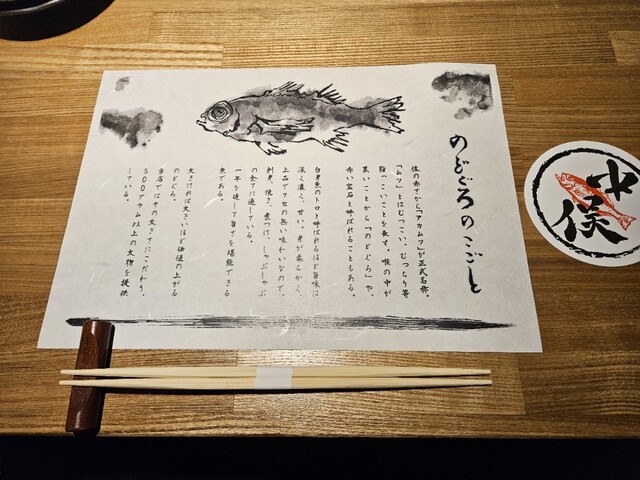 のどぐろのこごと
体の赤さから「アカムツ」が正式名称。
「ムツ」とはむつこい、むっちり等
脂っこいことを表す。喉の中が
黒いことから「のどぐろ」や、
赤い宝石と呼ばれることもある。
白身魚のトロと呼ばれるほど旨味は
深く濃く、甘い。身が柔らかく、
上品でクセの無い味わいなので、
刺身、焼き、煮つけ、しゃぶしゃぶ
の全てに適している。
一年を通して旨さを堪能できる
魚である。
大きければ大きいほど価値の上がる
のどぐろ。
当店ではその大きさにこだわり、
500グラム以上の大物を提供
している。
中俣